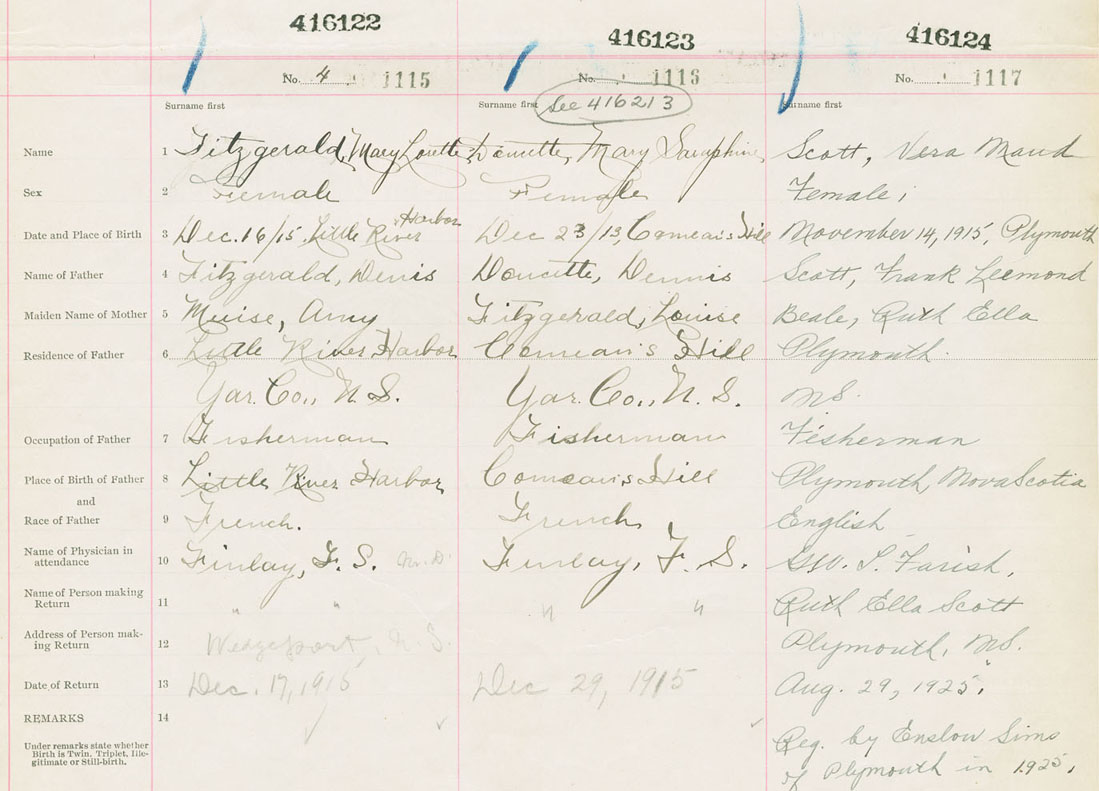 416122 416123 416124
No. 4 1115 No. 1116 No. 1117
Surname first Surname first See 416213 Surname first
Name 1 Fitzgerald, Mary Lorette Doucette, Mary Saraphine Scott, Vera Maud
Sex 2 Female Female Female;
Harbor
Date and Place of Birth 3 Dec. 16/15. Little River Dec 23/13, Comeau's Hill November 14, 1915, Plymouth
Name of Father 4 Fitzgerald, Denis Doucette, Dennis Scott, Frank Leemond
Maiden Name of Mother 5 Muise, Amy Fitzgerald, Louise Beale, Ruth Ella
Residence of Father 6 Little River Harbor Comeau's Hill Plymouth.
Yar. Co., N. S. Yar. Co., N. S. NS.
Occupation of Father 7 Fisherman Fisherman Fisherman
Place of Birth of Father 8 Little River Harbor Comeau's Hill Plymouth, Nova Scotia
and
Race of Father 9 French. French English
Name of Physician in
attendance 10 Finlay, F. S. M.D. Finlay, F. S. GW. T. Farish.
Name of Person making
Return 11 " " " " Ruth Ella Scott
Address of Person mak-
ing Return 12 Wedgeport, N. S. Plymouth, NS.
Date of Return 13 Dec. 17, 1915 Dec 29, 1915 Aug. 29, 1925.
REMARKS 14
Under remarks state whether
Birth is Twin. Triplet, Ille-
gitimate or Still-birth.
Reg. by Enslow Sims
of Plymouth in 1925.